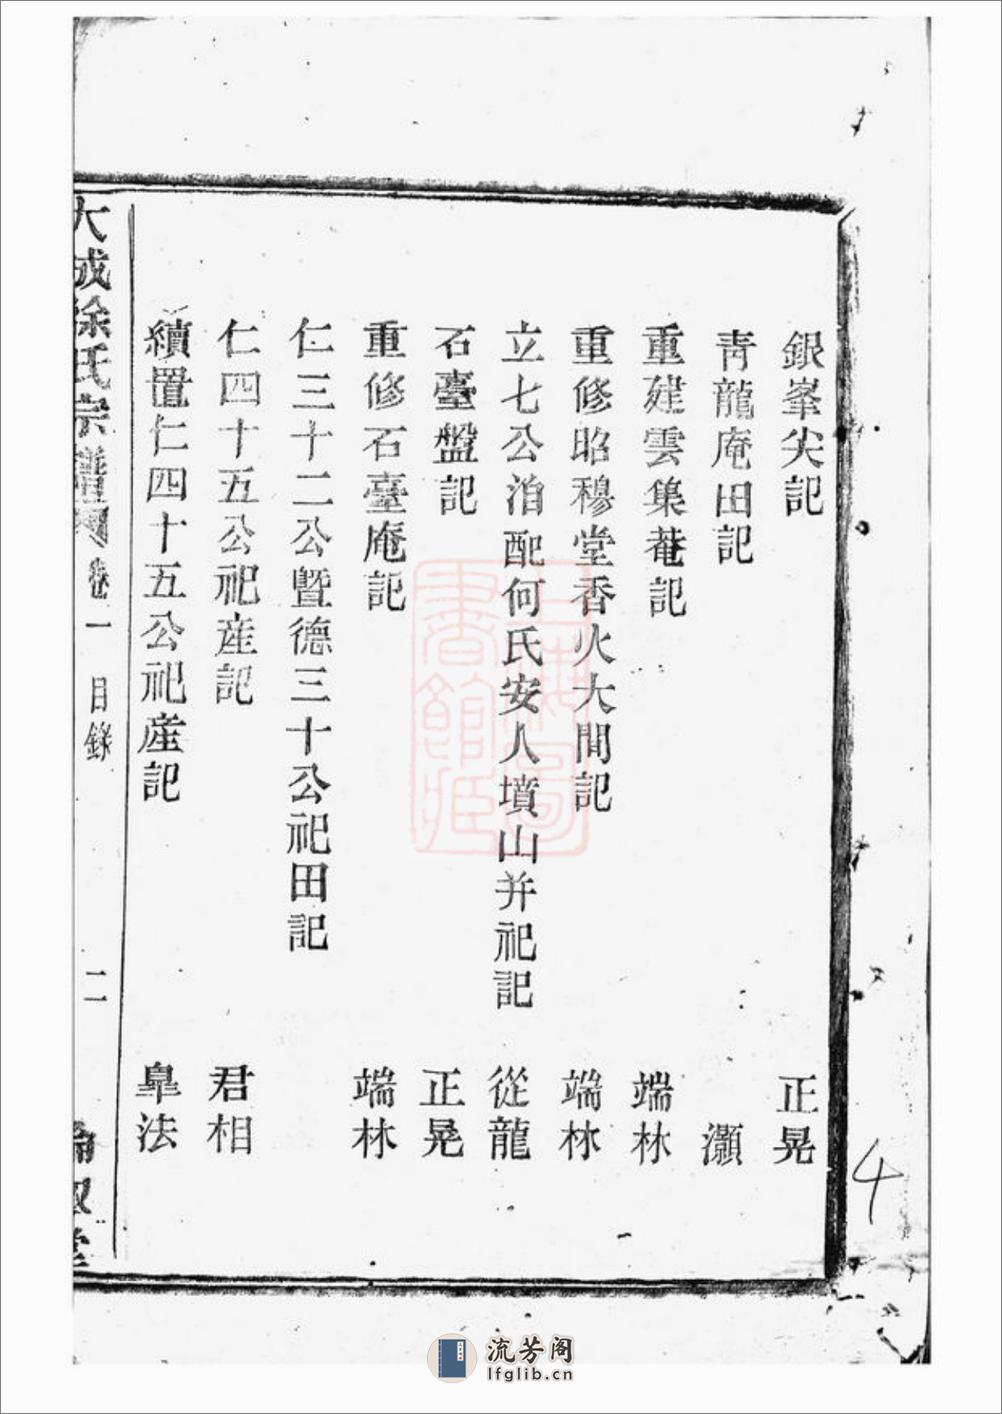 銀峯尖記 正晃
青龍庵田記 灝
重建雲集菴記 端林
重修昭穆堂香火大間記 端林
立七公洎配何氏安人墳山并祀記 從龍
石臺盤記 正晃
重修石臺庵記 端林
仁三十二公曁德三十公祀田記
仁四十五公祀産記 君相
續置仁四十五公祀産記 臯法
大成徐氏宗譜 卷一 目錄 二
4
上海圖書館藏
流芳阁
lfglib.cn